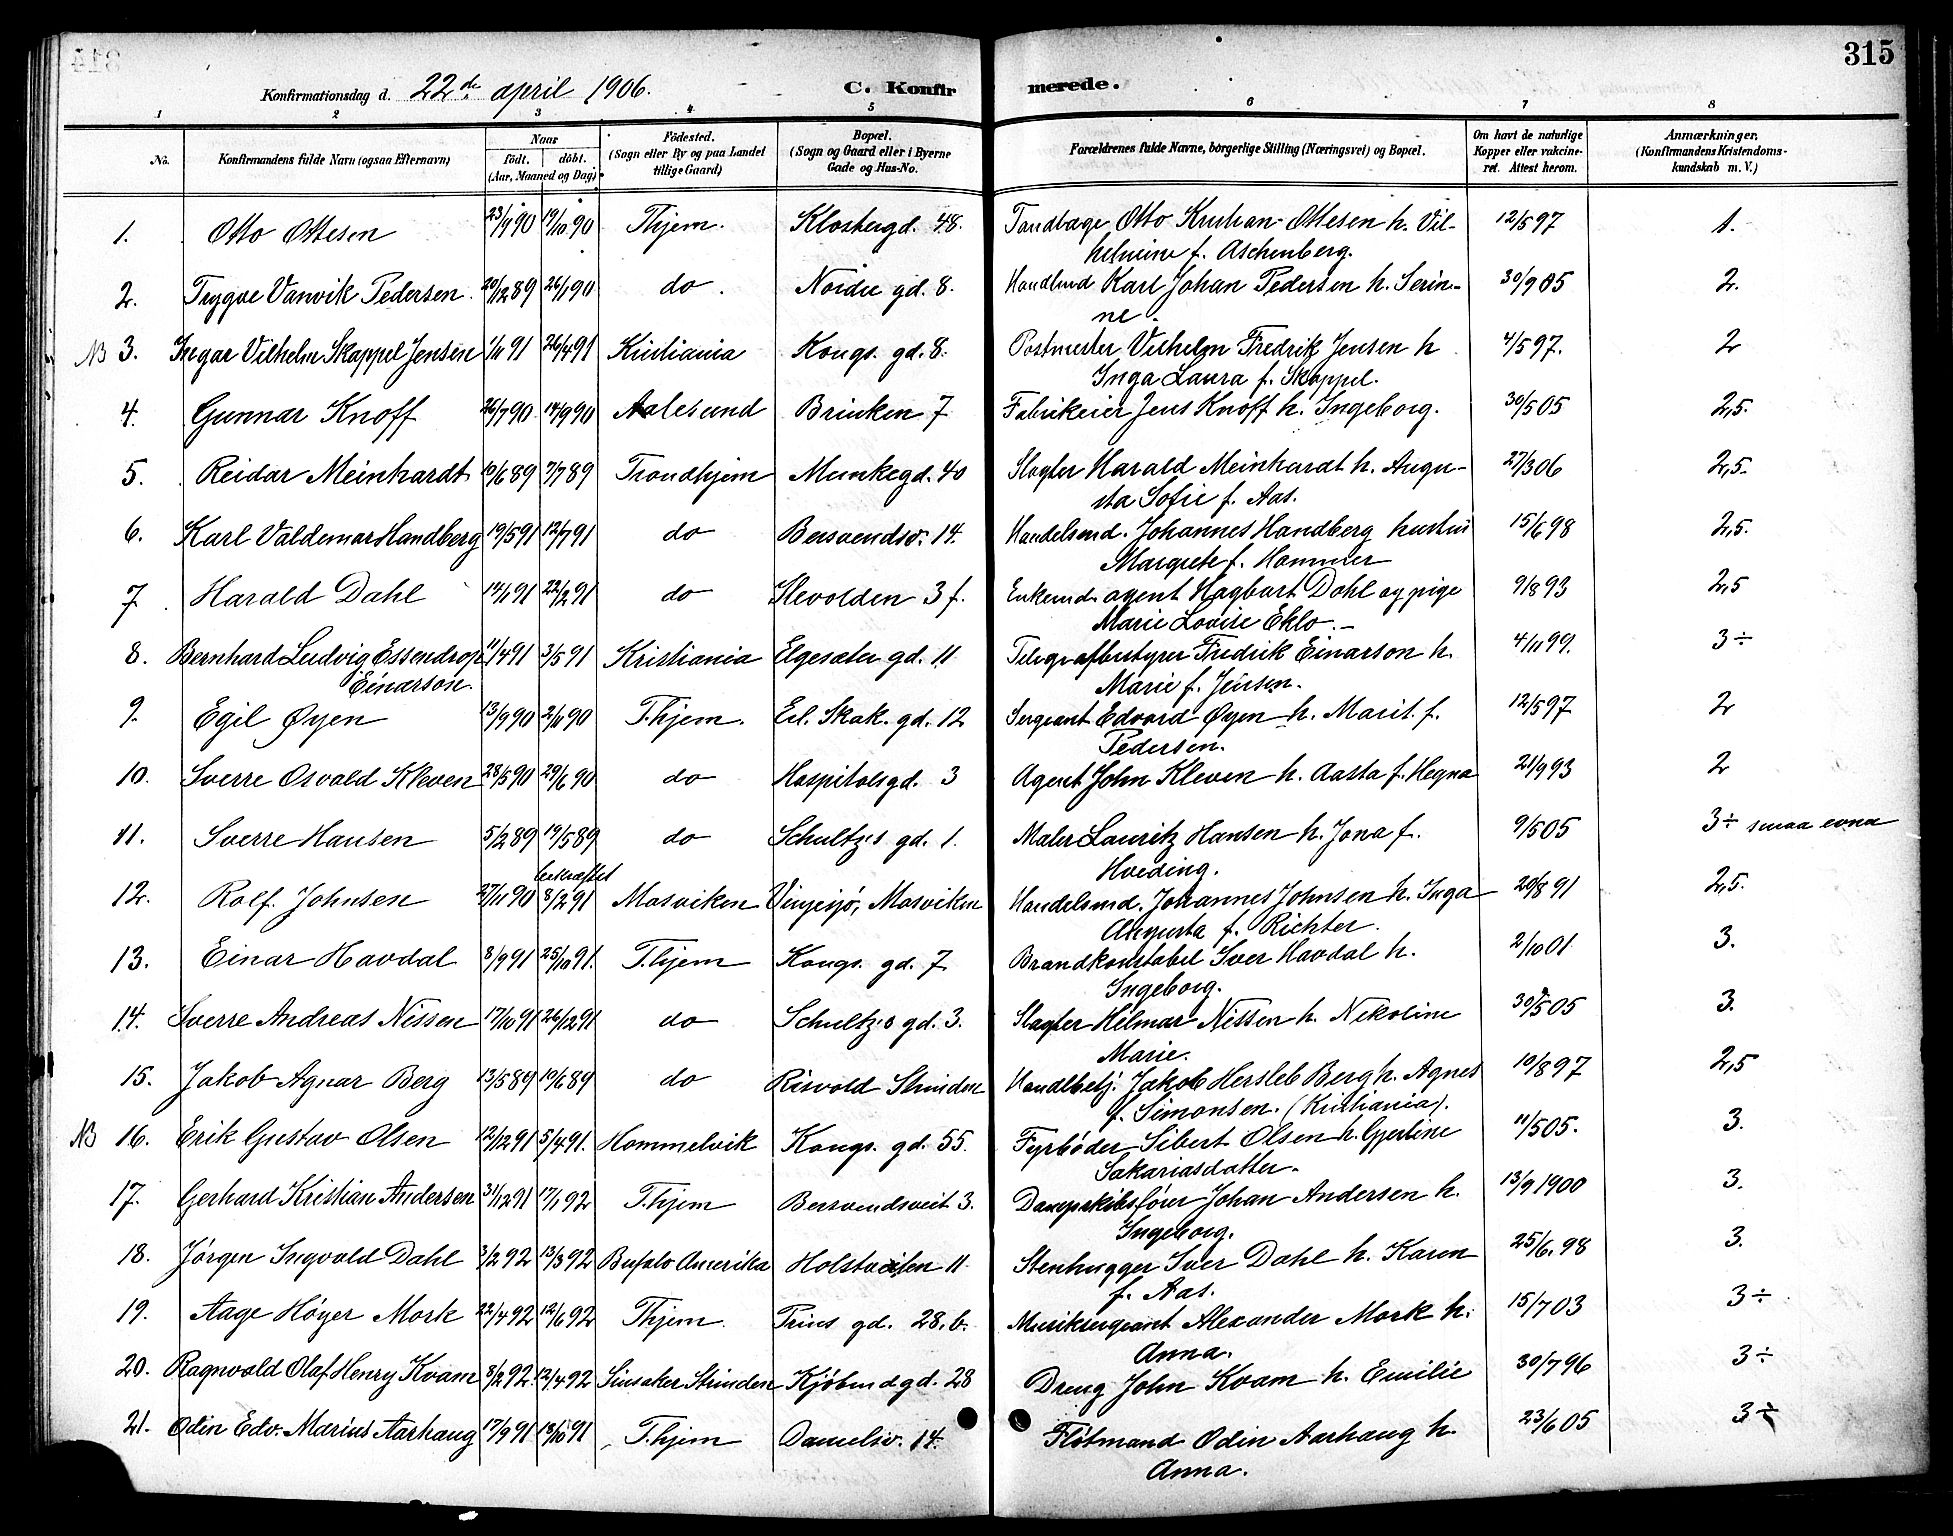 315
Konfirmationsdag d. 22de april 1906. C. Konfirmerede.
1 2 3 4 5 6 7 8
No. Konfirmandens fulde Navn (ogsaa Efternavn) Naar født. døbt. (Aar, Maaned og Dag) Fødested. (Sogn eller By og paa Landet tillige Gaard) Bopæl. (Sogn og Gaard eller i Byerne Gade og Hus-No. Forældrenes fulde Navne, borgerlige Stilling (Næringsvei) og Bopæl. Om havt de naturlige Kopper eller vakcineret. Attest herom. Anmærkninger. (Konfirmandens Kristendomskundskab m. V.)
1. Otto Ottesen 23/9 90 19/10 90 Thjem. Klostergd. 48. Tandlæge Otto Kristian Ottesen h. Vil- 12/5 97 1.
helmine f. Aschenberg.
2. Trygve Vanvik Pedersen 20/12 89 26/1 90 do. Nordre gd. 8. Handlmd Karl Johan Pedersen h. Serin- 30/9 05 2.
ne.
NB 3. Ingar Vilhelm Skappel Jensen 1/11 91 26/4 91 Kristiania Kongs. gd. 8. Postmester Vilhelm Fredrik Jensen h 4/5 97. 2
Inga Laura f. Skappel.
4. Gunnar Knoff 26/7 90 14/9 90 Aalesund Brinken 7 Fabrikeier Jens Knoff h. Ingeborg. 30/5 05 2,5.
5. Reidar Meinhardt 10/6 89 7/7 89 Trondhjem Munkegd. 40 Slagter Harald Meinhardt h. Augu- 27/3 06 2,5.
sta Sofie f. Aas.
6. Karl Valdemar Handberg 19/5 91 12/7 91 do Bersvendsv. 14. Handelsmd. Johannes Handberg hustru 15/6 98 2,5.
Margrete f. Hammer
7. Harald Dahl 14/1 91 22/2 91 do Ilevolden 3 f. Enkemd. agent Hagbart Dahl og pige 9/8 93 2,5
Marie Lovise Eklo.-
8. Bernhard Ludvig Essendrop 11/4 91 3/5 91 Kristiania Elgesæter gd. 11 Telegrafbestyrer Fredrik Einarson h. 4/11 99. 3÷
Einarson. Marie f. Jensen.
9. Egil Øyen 13/9 90 2/11 90 T.hjem. Erl. Skak. gd. 12 Sergeant Edvard Øyen h. Marit f. 12/5 97 2
Pedersen.
10. Sverre Osvald Kleven 28/5 90 29/6 90 do Hospitalsgd. 3 Agent John Kleven h. Aasta f. Hegna 21/9 93 2
11. Sverre Hansen 5/2 89 19/5 89 do Schultz's gd. 1. Maler Lauritz Hansen h. Jona f. 9/5 05 3÷ smaa evner
bekræftet Hveding.
12. Rolf Johnsen 27/11 90 8/2 91 Mosviken Vinjesjø, Mosviken Handelsmd. Johannes Johnsen h. Inga 20/8 91 2,5.
Augusta f. Richter.
13. Einar Havdal 8/9 91 25/10 91. T.hjem Kongs. gd. 7 Brandkonstabel Iver Havdal h. 2/10 01 3.
Ingeborg.
14. Sverre Andreas Nissen 17/10 91 26/12 91 do Schultz's gd. 3. Slagter Hilmar Nissen h. Nikoline 30/5 05 3.
Marie.
15. Jakob Agnar Berg 13/5 89 10/6 89 do Risvold Strinden Handlbetj. Jakob Hersleb Berg h. Agnes 10/8 97 2,5
f. Simonsen. (Kristiania).
NB 16. Erik Gustav Olsen 12/12 91 5/4 91. Hommelvik Kongs. gd. 55. Fyrbøder Sibert Olsen h. Gjertine 11/5 05. 3.
Sakariasdatter.
17. Gerhard Kristian Andersen 31/12 91 17/1 92 T.hjem Bersvendsveit 3. Dampskibsfører Johan Andersen h. 13/9 1900 3.
Ingeborg.
18. Jørgen Ingvald Dahl 3/2 92 13/3 92 Bufalo Amerika Holstveiten 11 Stenhugger Iver Dahl h. Karen 25/6. 98 3.
f. Aas.
19. Aage Høyer Mork 22/4 92 12/6 92 Thjem Prins gd. 28. b. Musiksergeant Alexander Mork h. 15/7 03 3÷
Anna.
20. Ragnvald Olaf Henry Kvam 8/2 92. 12/4 92 Sinsaker Strinden Kjøbmdgd. 28 Dreng John Kvam h. Emilie 30/7 96 3÷
21. Odin Edv. Marius Aarhaug 17/9 91 18/10 91 T.hjem Danielsv. 14. Fløtmand Odin Aarhaug h. 23/6 05 3÷
Anna.